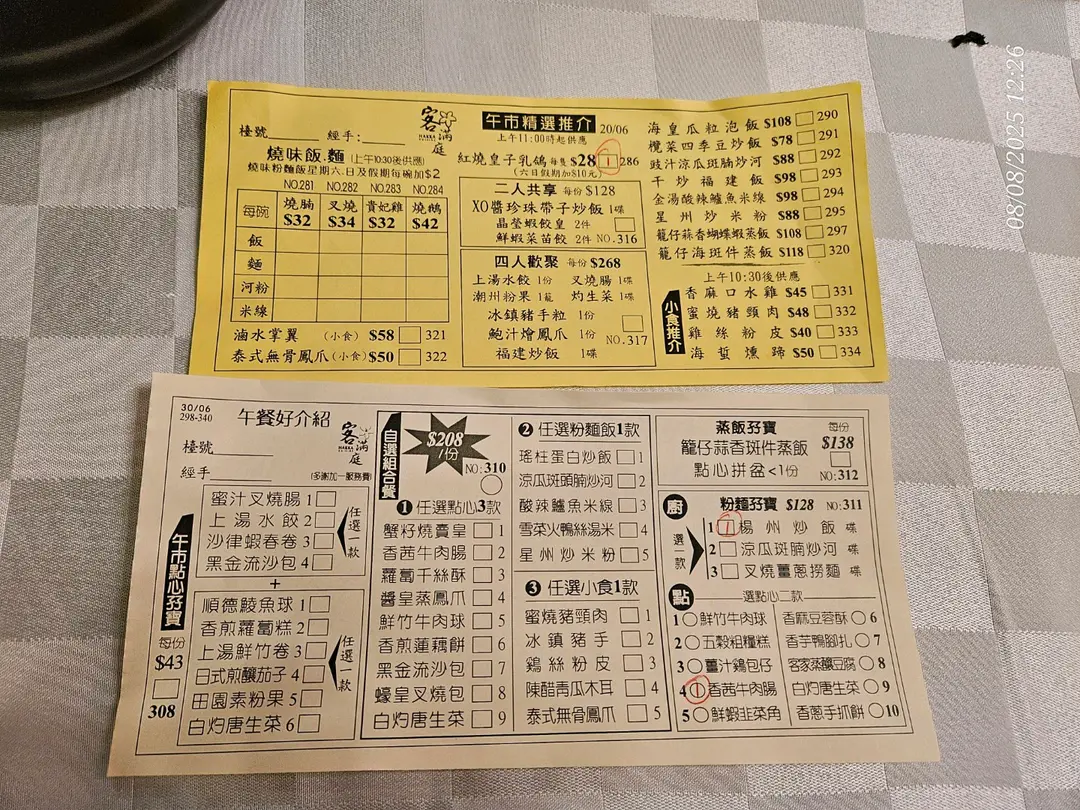 檯號 經手:
客滿庭
HAKKA
午市精選推介 20/06
上午11:00時起供應
燒味飯.麵 (上午10:30後供應)
燒味粉麵飯星期六.日及假期每碗加$2
NO.281 NO.282 NO.283 NO.284
每碗 燒腩 $32 叉燒 $34 貴妃雞 $32 燒鵝 $42
飯
麵
河粉
米線
滷水掌翼 (小食) $58 321
泰式無骨鳳爪 (小食) $50 322
紅燒皇子乳鴿 每隻 $28 1 286
(六日假期加$10元)
二人共享 每份 $128
XO醬珍珠帶子炒飯 1碟
晶瑩蝦餃皇 2件
鮮蝦菜苗餃 2件 NO.316
四人歡聚 每份 $268
上湯水餃 1份 叉燒腸 1碟
潮州粉果 1籠 灼生菜 1碟
冰鎮豬手粒 1份
鮑汁燴鳳爪 1份 NO.317
福建炒飯 1碟
海皇瓜粒泡飯 $108 290
欖菜四季豆炒飯 $78 291
豉汁涼瓜斑腩炒河 $88 292
干炒福建飯 $98 293
金湯酸辣鱸魚米線 $98 294
星州炒米粉 $88 295
籠仔蒜香蝴蝶蝦蒸飯 $108 297
籠仔海斑件蒸飯 $118 320
上午10:30後供應
小食推介
香麻口水雞 $45 331
蜜燒豬頸肉 $48 332
雞絲粉皮 $40 333
海蜇燻蹄 $50 334
08/08/2025 12:26
30/06
298-340
午餐好介紹
客滿庭
HAKKA
檯號
經手
(多謝加一服務費)
午市點心孖寶
每份
$43
308
蜜汁叉燒腸 1
上湯水餃 2
沙律蝦春卷 3
黑金流沙包 4
任選一款
+
順德鯪魚球 1
香煎蘿蔔糕 2
上湯鮮竹卷 3
日式煎釀茄子 4
田園素粉果 5
白灼唐生菜 6
任選一款
自選組合餐
$208
1份
NO:310
1 任選點心3款
蟹籽燒賣皇 1
香茜牛肉腸 2
蘿蔔千絲酥 3
醬皇蒸鳳爪 4
鮮竹牛肉球 5
香煎蓮藕餅 6
黑金流沙包 7
蠔皇叉燒包 8
白灼唐生菜 9
2 任選粉麵飯1款
瑤柱蛋白炒飯 1
涼瓜斑頭腩炒河 2
酸辣鱸魚米線 3
雪菜火鴨絲湯米 4
星州炒米粉 5
3 任選小食1款
蜜燒豬頸肉 1
冰鎮豬手 2
鷄絲粉皮 3
陳醋青瓜木耳 4
泰式無骨鳳爪 5
蒸飯孖寶 每份
籠仔蒜香斑件蒸飯 $138
點心拼盆<1份 NO:312
廚 粉麵孖寶 $128 NO:311
選一款
1 1 楊州炒飯 碟
2 涼瓜斑腩炒河 碟
3 叉燒薑蔥撈麵 碟
點 選點心二款
1 鮮竹牛肉球 香麻豆蓉酥 6
2 五穀粗糧糕 香芋鴨腳扎 7
3 薑汁鷄包仔 客家蒸釀豆腐 8
4 1 香茜牛肉腸 白灼唐生菜 9
5 鮮蝦韭菜角 香蔥手抓餅 10